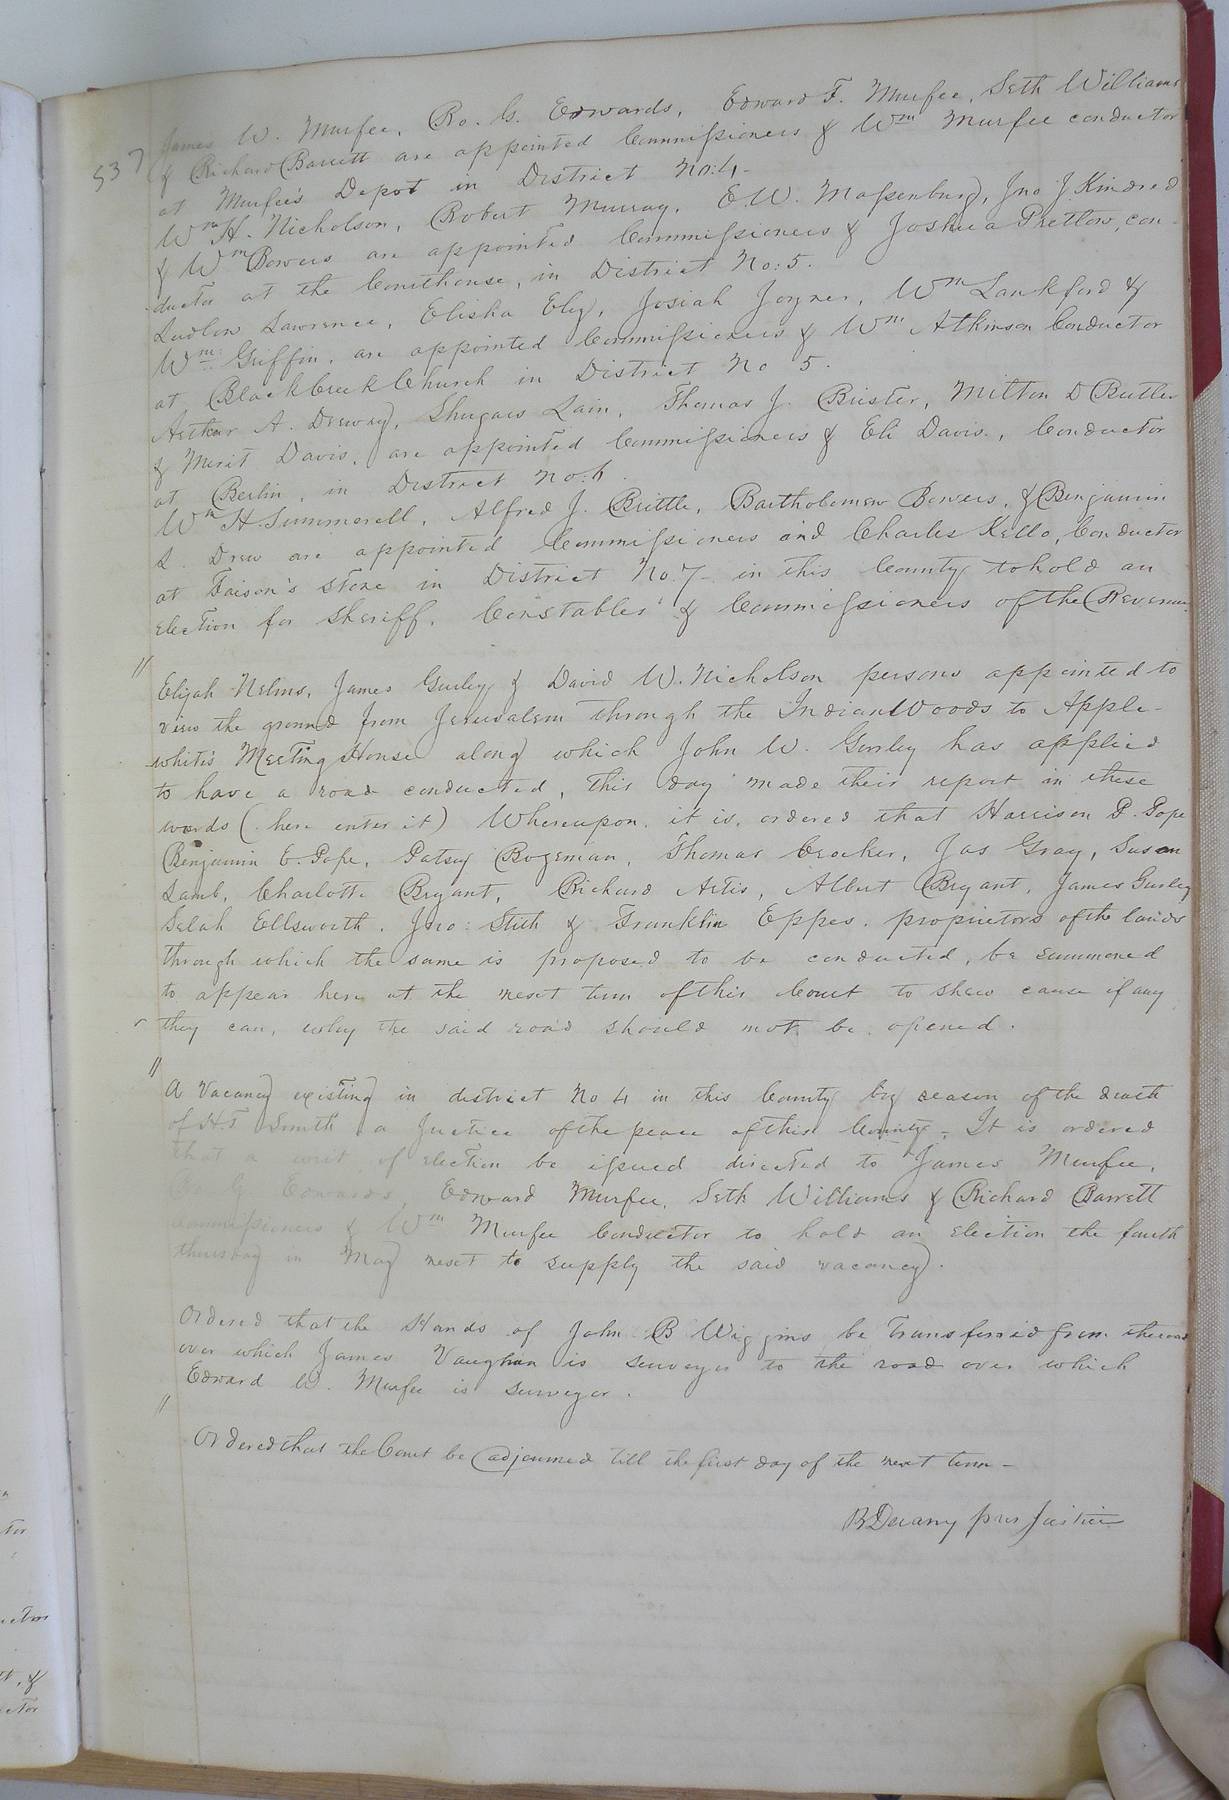 537
James W. Murfee, Ro. G. Edwards, Edward F. Murfee, Seth Williams
& Richard Barrett are appointed Commissioners & Wm Murfee conductor
at Murfee's Depot in District No: 4-
Wm H. Nicholson, Robert Murray, E. W. Massenburg, Jno J. Kindred
& Wm Bowers are appointed Commissioners & Joshua Pretlow, con-
ductor at the Courthouse, in District No: 5.
Ludlow Lawrence, Elisha Eley, Josiah Joyner, Wm Lankford &
Wm Griffin, are appointed Commissioners & Wm Atkinson Conductor
at Black Creek Church in District No 5.
Arthur A. Drewry, Shugars Lain, Thomas J. Brister, Milton D Butler
& Merit Davis, are appointed Commissioners & Eli Davis, Conductor
at Berlin, in District No: 6.
Wm H. Summerell, Alfred J. Brittle, Bartholomew Bowers, & Benjamin
S. Drew are appointed Commissioners and Charles Kello, Conductor
at Faison's store in District No. 7- in this County to hold an
election for Sheriff, Constables & Commissioners of the Revenue.
"
Elijah Nelms, James Gurley & David W. Nicholson persons appointed to
view the ground from Jerusalem through the Indian Woods to Apple-
white's Meeting House along which John W. Gurley has applied
to have a road conducted, this day made their report in these
words (here enter it) Whereupon it is ordered that Harrison P. Pope
Benjamin E. Pope, Patsey Bozeman, Thomas Crocker, Jas Gray, Susan
Lamb, Charlotte Bryant, Richard Artis, Albert Bryant, James Gurley
Selah Ellsworth, Jno: Stith & Franklin Eppes, proprietors of the lands
through which the same is proposed to be conducted, be summoned
to appear here at the next term of this Court to shew cause if any
they can, why the said road should not be opened.
"
A Vacancy existing in district No 4 in this County by reason of the death
of H. T Smith a Justice of the peace of this County- It is ordered
that a writ of election be issued directed to James Murfee,
Ro G Edwards, Edward Murfee, Seth Williams & Richard Barrett
Commissioners & Wm Murfee Conductor to hold an election the fourth
thursday in May next to supply the said vacancy.
Ordered that the Hands of John B Wiggins be transferred from the road
over which James Vaughan is surveyor to the road over which
Edward W. Murfee is surveyor.
"
Ordered that the Court be adjourned till the first day of the next term-
B Drewry pres Justice